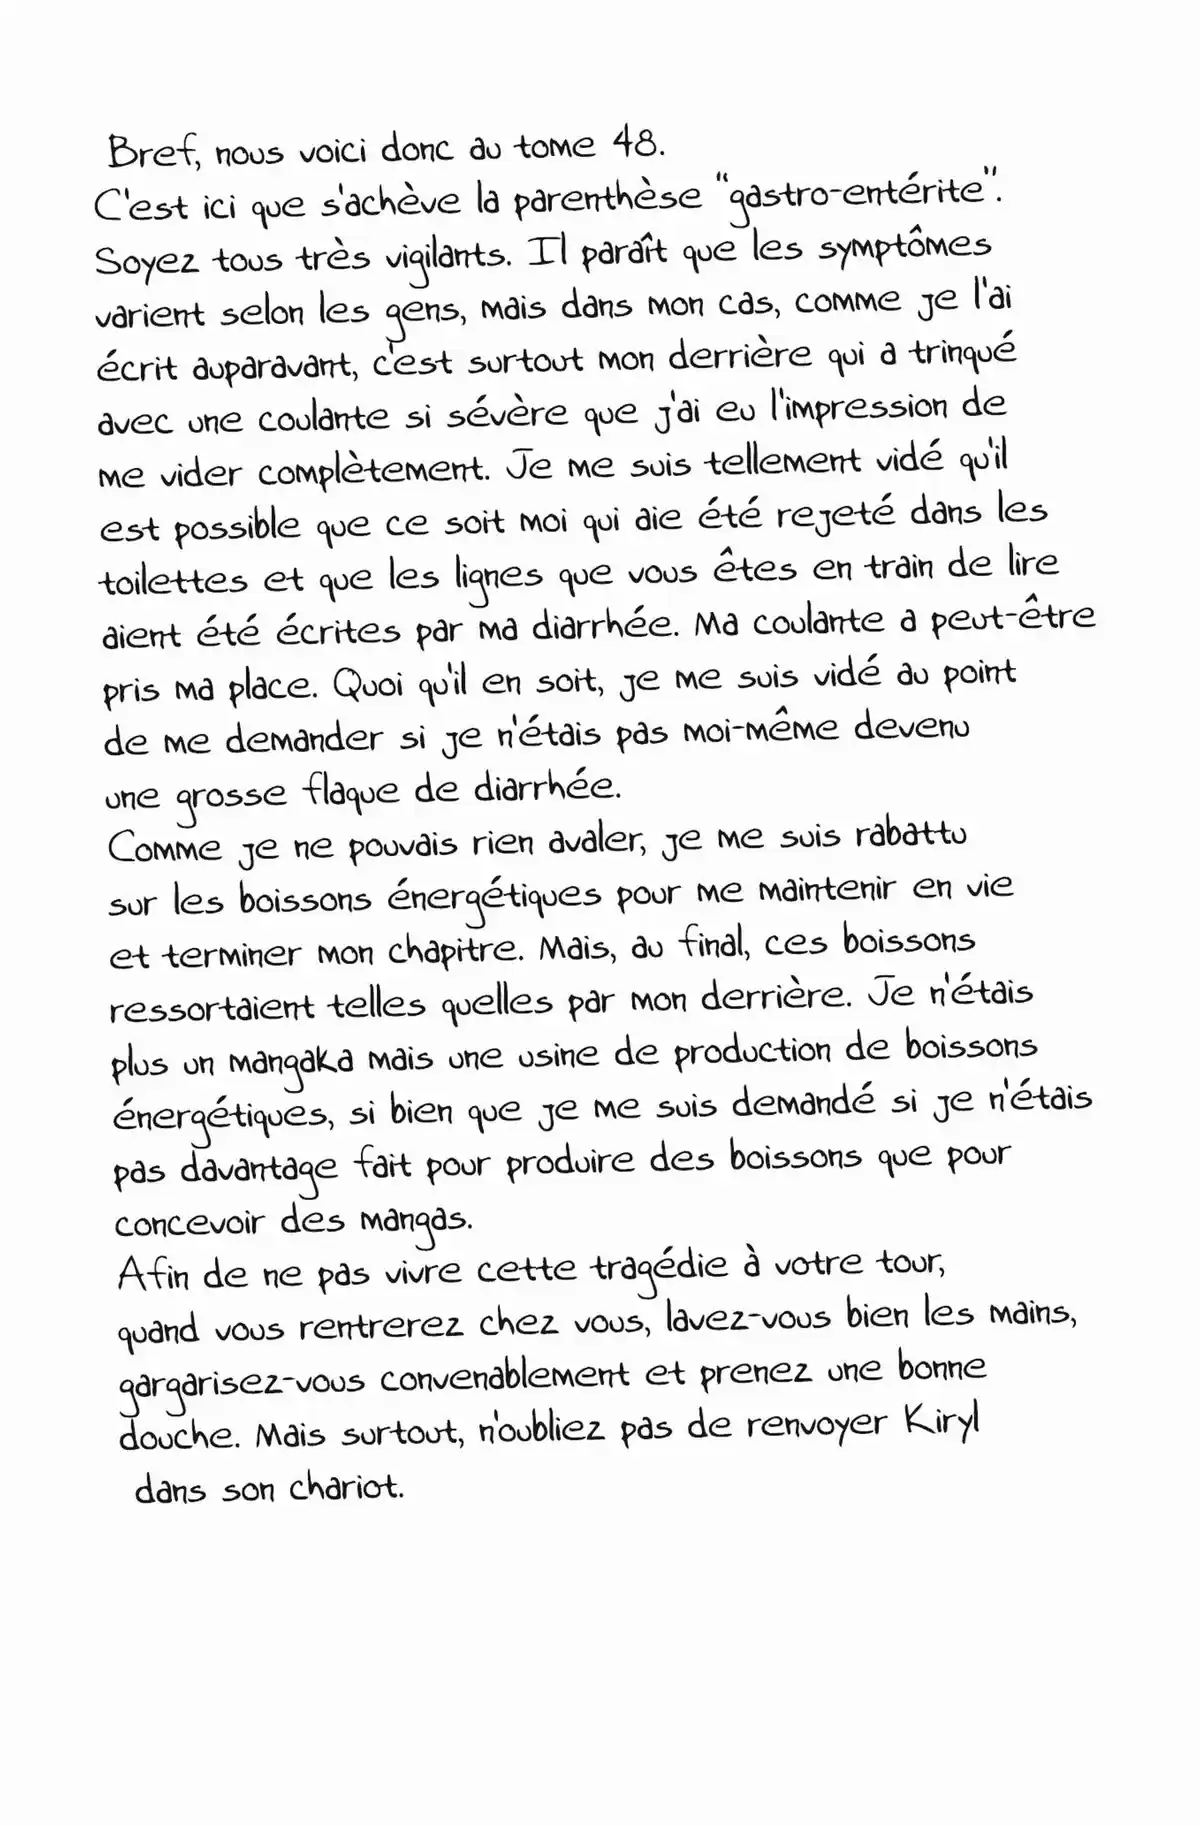 Bref, nous voici donc au tome 48.
C'est ici que s'achève la parenthèse "gastro-entérite".
Soyez tous très vigilants. Il paraît que les symptômes
varient selon les gens, mais dans mon cas, comme je l'ai
écrit auparavant, c'est surtout mon derrière qui a trinqué
avec une coulante si sévère que j'ai eu l'impression de
me vider complètement. Je me suis tellement vidé qu'il
est possible que ce soit moi qui aie été rejeté dans les
toilettes et que les lignes que vous êtes en train de lire
aient été écrites par ma diarrhée. Ma coulante a peut-être
pris ma place. Quoi qu'il en soit, je me suis vidé au point
de me demander si je n'étais pas moi-même devenu
une grosse flaque de diarrhée.
Comme je ne pouvais rien avaler, je me suis rabattu
sur les boissons énergétiques pour me maintenir en vie
et terminer mon chapitre. Mais, au final, ces boissons
ressortaient telles quelles par mon derrière. Je n'étais
plus un mangaka mais une usine de production de boissons
énergétiques, si bien que je me suis demandé si je n'étais
pas davantage fait pour produire des boissons que pour
concevoir des mangas.
Afin de ne pas vivre cette tragédie à votre tour,
quand vous rentrerez chez vous, lavez-vous bien les mains,
gargarisez-vous convenablement et prenez une bonne
douche. Mais surtout, n'oubliez pas de renvoyer Kiryl
dans son chariot.